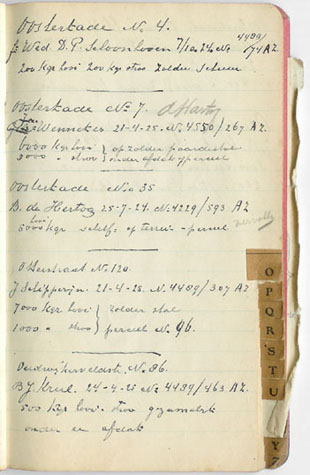 Oosterkade No. 4.
Wed. D. P. Schoonhoven 7/10.24. No 4439/174 AZ.
200 kgr hooi 200 kgr stroo zolder schuur
Oosterkade No 7. d Hartog
Wennekes 21-4-25. No. 4550/267 AZ.
6000 kgr hooi } op zolder paardestal
3000 " stroo } onder afdak perceel
Oosterkade No 35
B. de Hertog 25-7-24. No 4229/593 AZ
5000 kgr hooi schelf op terrein perceel
straat No. 120.
J. Schipperijn. 21-4-25. No 4439/307 AZ
7000 kgr hooi } zolder stal
1000 " stroo } perceel No. 96.
No. 86.
B. J. Krud. 24-4-25 No 4439/463 AZ.
500 kgr hooi stroo gezamelijk
onder een afdak
O
P
Q
R
S
T
U
Y
Z